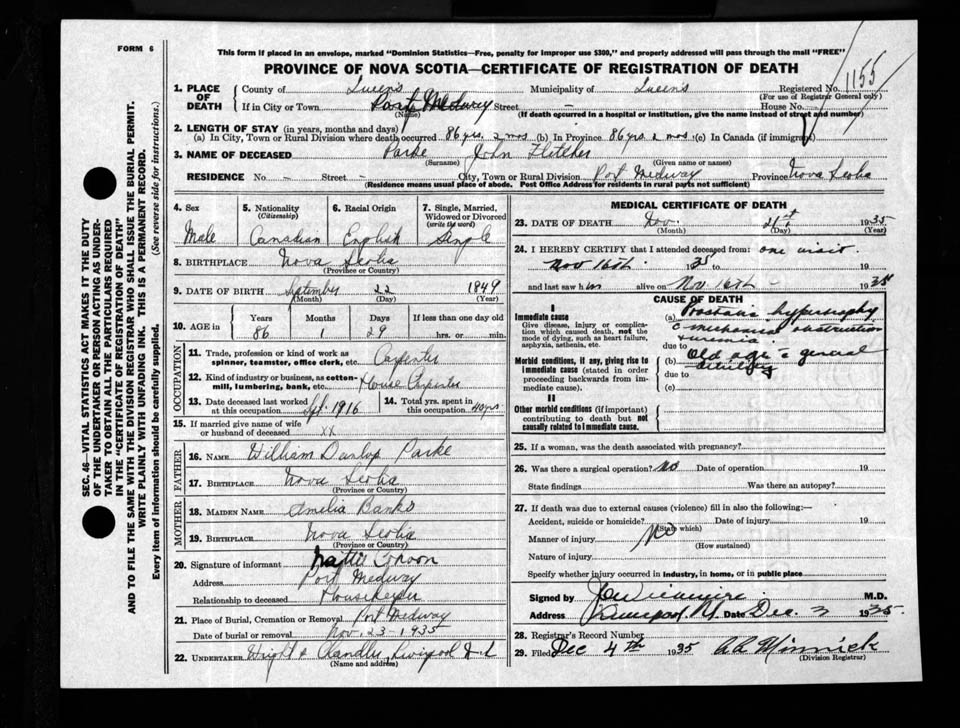 FORM 6
This form if placed in an envelope, marked "Dominion Statistics—Free, penalty for improper use $300," and properly addressed will pass through the mail "FREE"
PROVINCE OF NOVA SCOTIA—CERTIFICATE OF REGISTRATION OF DEATH
SEC. 46—VITAL STATISTICS ACT MAKES IT THE DUTY
OF THE UNDERTAKER OR PERSON ACTING AS UNDER-
TAKER TO OBTAIN ALL THE PARTICULARS REQUIRED
IN THE "CERTIFICATE OF REGISTRATION OF DEATH"
AND TO FILE THE SAME WITH THE DIVISION REGISTRAR WHO SHALL ISSUE THE BURIAL PERMIT.
WRITE PLAINLY WITH UNFADING INK. THIS IS A PERMANENT RECORD.
Every item of information should be carefully supplied. (See reverse side for instructions.)
1. PLACE OF DEATH County of Queens Municipality of Queens Registered No. 1155
(For use of Registrar General only)
If in City or Town Port Medway Street — House No.
(Name) (If death occurred in a hospital or institution, give the name instead of street and number)
2. LENGTH OF STAY (in years, months and days)
(a) In City, Town or Rural Division where death occurred 86 yrs. 2 mos (b) In Province 86 yrs 2 mos. (c) In Canada (if immigrant)
3. NAME OF DECEASED Parke John Fletcher
(Surname) (Given name or names)
RESIDENCE No. — Street — City, Town or Rural Division Port Medway Province Nova Scotia
(Residence means usual place of abode. Post Office Address for residents in rural parts not sufficient)
4. Sex 5. Nationality (Citizenship) 6. Racial Origin 7. Single, Married, Widowed or Divorced (write the word)
Male Canadian English Single
8. BIRTHPLACE Nova Scotia
(Province or Country)
9. DATE OF BIRTH September 22 1849
(Month) (Day) (Year)
10. AGE in Years Months Days If less than one day old
86 1 29 hrs. or min.
OCCUPATION
11. Trade, profession or kind of work as spinner, teamster, office clerk, etc. Carpenter
12. Kind of industry or business, as cotton-mill, lumbering, bank, etc. House Carpenter
13. Date deceased last worked at this occupation Sept. 1916 14. Total yrs. spent in this occupation 40 yrs
15. If married give name of wife or husband of deceased xx
FATHER
16. NAME William Dunlop Parke
17. BIRTHPLACE Nova Scotia
(Province or Country)
MOTHER
18. MAIDEN NAME Amelia Banks
19. BIRTHPLACE Nova Scotia
(Province or Country)
20. Signature of informant
Address Port Medway
Relationship to deceased Housekeeper
21. Place of Burial, Cremation or Removal Port Medway
Date of burial or removal Nov. 23 - 1935
22. UNDERTAKER Wright & Chandler, Liverpool N.S.
(Name and address)
MEDICAL CERTIFICATE OF DEATH
23. DATE OF DEATH Nov. 21st 1935
(Month) (Day) (Year)
24. I HEREBY CERTIFY that I attended deceased from: one visit.
Nov 16th. 1935 to 19
and last saw him alive on Nov 16th - 1935
CAUSE OF DEATH
I
Immediate cause
Give disease, injury or complication which caused death, not the mode of dying, such as heart failure, asphyxia, asthenia, etc.
(a) Prostatic hypertrophy
c mechanical obstruction
due to uremia.
Morbid conditions, if any, giving rise to immediate cause (stated in order proceeding backwards from immediate cause).
(b) Old age & general
due to debility
(c)
II
Other morbid conditions (if important) contributing to death but not causally related to immediate cause.
25. If a woman, was the death associated with pregnancy?
26. Was there a surgical operation? No Date of operation 19
State findings Was there an autopsy?
27. If death was due to external causes (violence) fill in also the following:—
Accident, suicide or homicide? Date of injury 19
(State which)
Manner of injury No
(How sustained)
Nature of injury
Specify whether injury occurred in industry, in home, or in public place
Signed by M.D.
Address Liverpool N.S. Date Dec. 3 1935.
28. Registrar's Record Number
29. Filed Dec 4th 1935 Minnick
(Division Registrar)